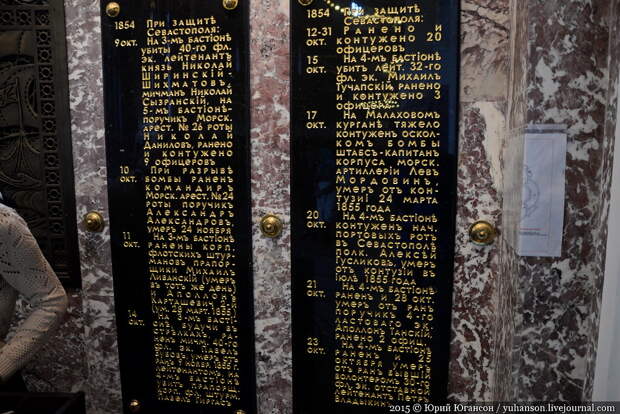 1854 При защитѣ
Севастополя:
9 окт. На 3-мъ бастіонѣ
убиты 40-го фл.
эк. лейтенантъ
князь Николай
Ширинскій-
Шихматовъ,
мичманъ Николай
Сызранскій, на
5-мъ бастіонѣ-
поручик Морск.
арест. № 26 роты
Николай
Даниловъ, ранено
и контужено
9 офицеровъ
10 окт. При разрывѣ
бомбы раненъ
командиръ
Морск. арест. № 24
роты поручикъ
Александръ
Александровъ,
умеръ 24 ноября
11 окт. На 3-мъ бастіонѣ
ранены корп.
флотскихъ штур-
мановъ прапор-
щики Михаилъ
Ливанскій (умеръ
въ тотъ же день)
Аполлонъ
14 окт.
1854 При защитѣ
Севастополя:
12-31 окт. Ранено и
контужено 20
офицеровъ
15 окт. На 4-мъ бастіонѣ
убитъ лейт. 32-го
фл. эк. Михаилъ
Тучапскій ранено
и контужено 3
офицера
17 окт. На Малаховомъ
курганѣ тяжело
контуженъ оскол-
комъ бомбы
штабсъ-капитанъ
корпуса морск.
артиллеріи Левъ
Мордовинъ,
умеръ отъ кон-
тузіи 24 марта
1855 года
20 окт. На 4-мъ бастіонѣ
контуженъ нач.
портовыхъ ротъ
въ Севастополѣ
полк. Алексѣй
Гусликовъ, умеръ
отъ контузіи въ
іюлѣ 1855 года
21 окт. На 4-мъ бастіонѣ
раненъ и 28 окт.
умеръ отъ ранъ
поручикъ 4-го
ластоваго эк.
ранено 2 офиц.
23 окт. На 4-мъ бастіонѣ
раненъ и
умеръ отъ
2015 © Юрий Югансон / yuhanson.livejournal.com